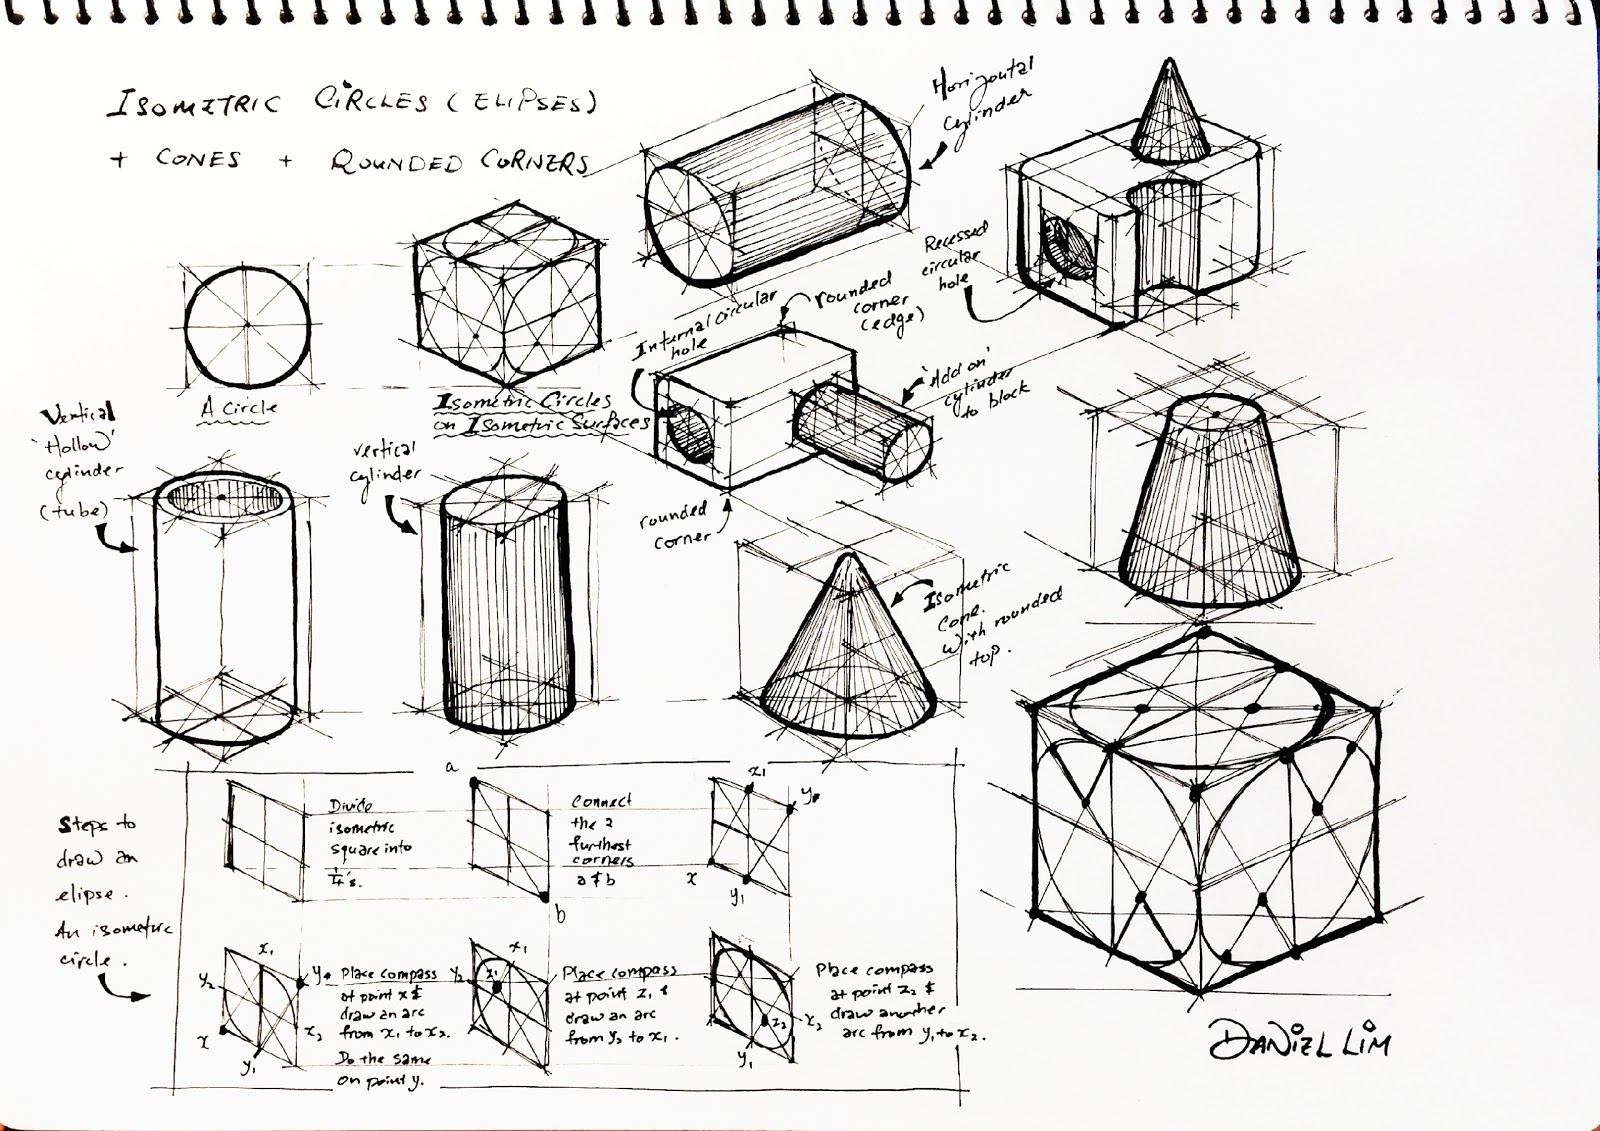 ISOMETRIC CIRCLES (ELIPSES)
+ CONES + ROUNDED CORNERS
Horizontal
cylinder
Recessed
circular
hole
rounded
corner
(edge)
Internal circular
hole
'Add on'
cylinder
to block
A Circle
Isometric Circles
on Isometric Surfaces
Vertical
'Hollow'
cylinder
(tube)
vertical
cylinder
rounded
corner
Isometric
Cone.
With rounded
top.
Steps to
draw an
elipse.
An isometric
circle.
Divide
isometric
square into
1/4's.
a
b
Connect
the 2
furthest
corners
a & b
x1
y
x
y1
x1
y2
y
x
x2
y1
Place compass
at point x &
draw an arc
from x1 to x2.
Do the same
on point y.
x1
y2
z1
Place compass
at point z1 &
draw an arc
from y2 to x1.
z2
x2
y1
Place compass
at point z2 &
draw another
arc from y1 to x2.
DANIEL LIM